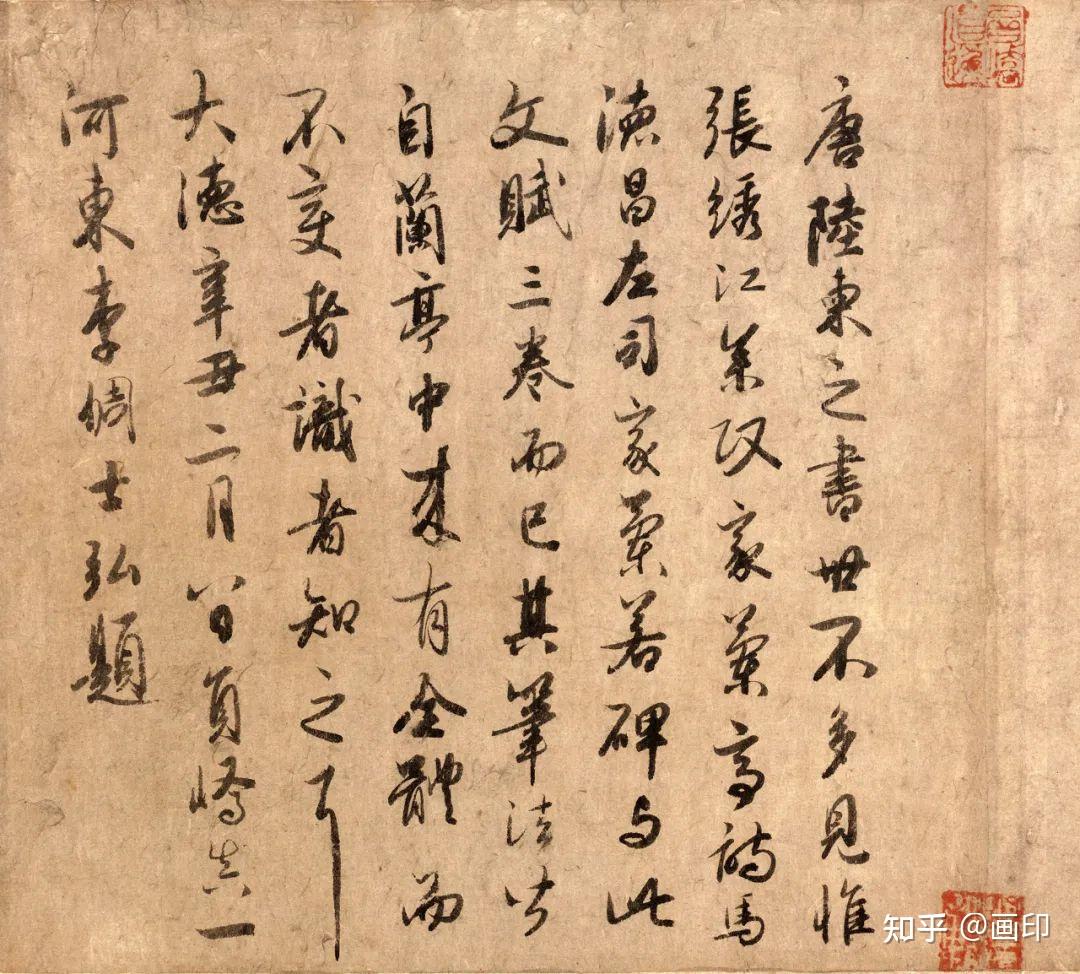 唐陸柬之書世不多見惟
張綉江參政家蘭亭詩馬
德昌左司家蘭若碑與此
文賦三卷而已其筆法皆
自蘭亭中來有全體而
不變者識者知之耳
大德辛丑二月八日員嶠真一
河東李倜士弘題
知乎 @画印